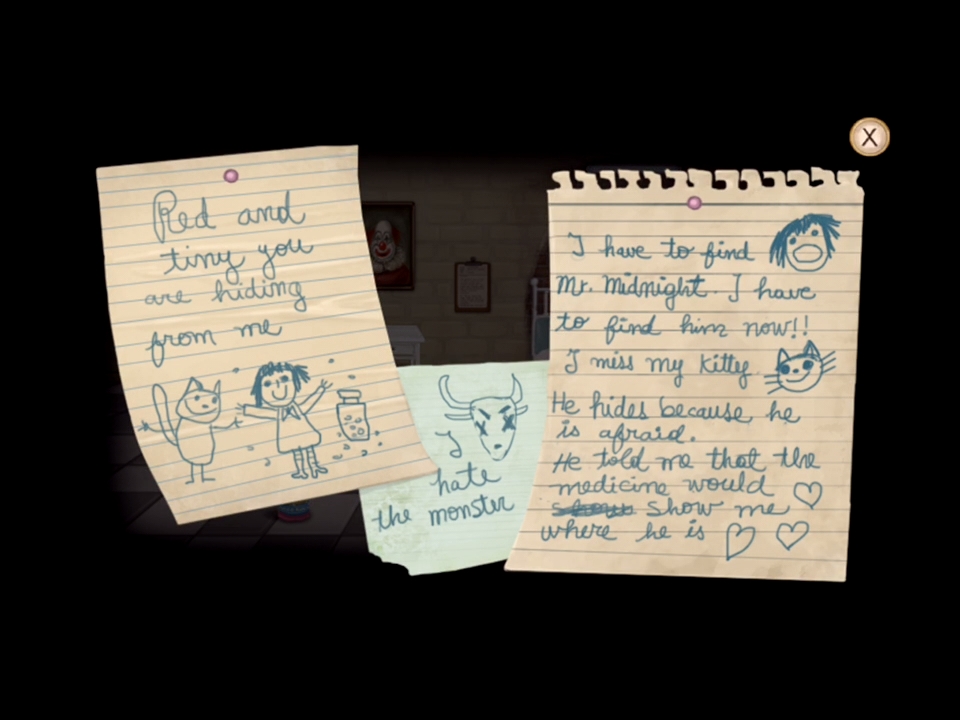 Red and
tiny you
are hiding
from me
I
hate
the monster
I have to find
Mr. Midnight. I have
to find him now!!
I miss my Kitty
He hides because he
is afraid.
He told me that the
medicine would
show me
where he is
X